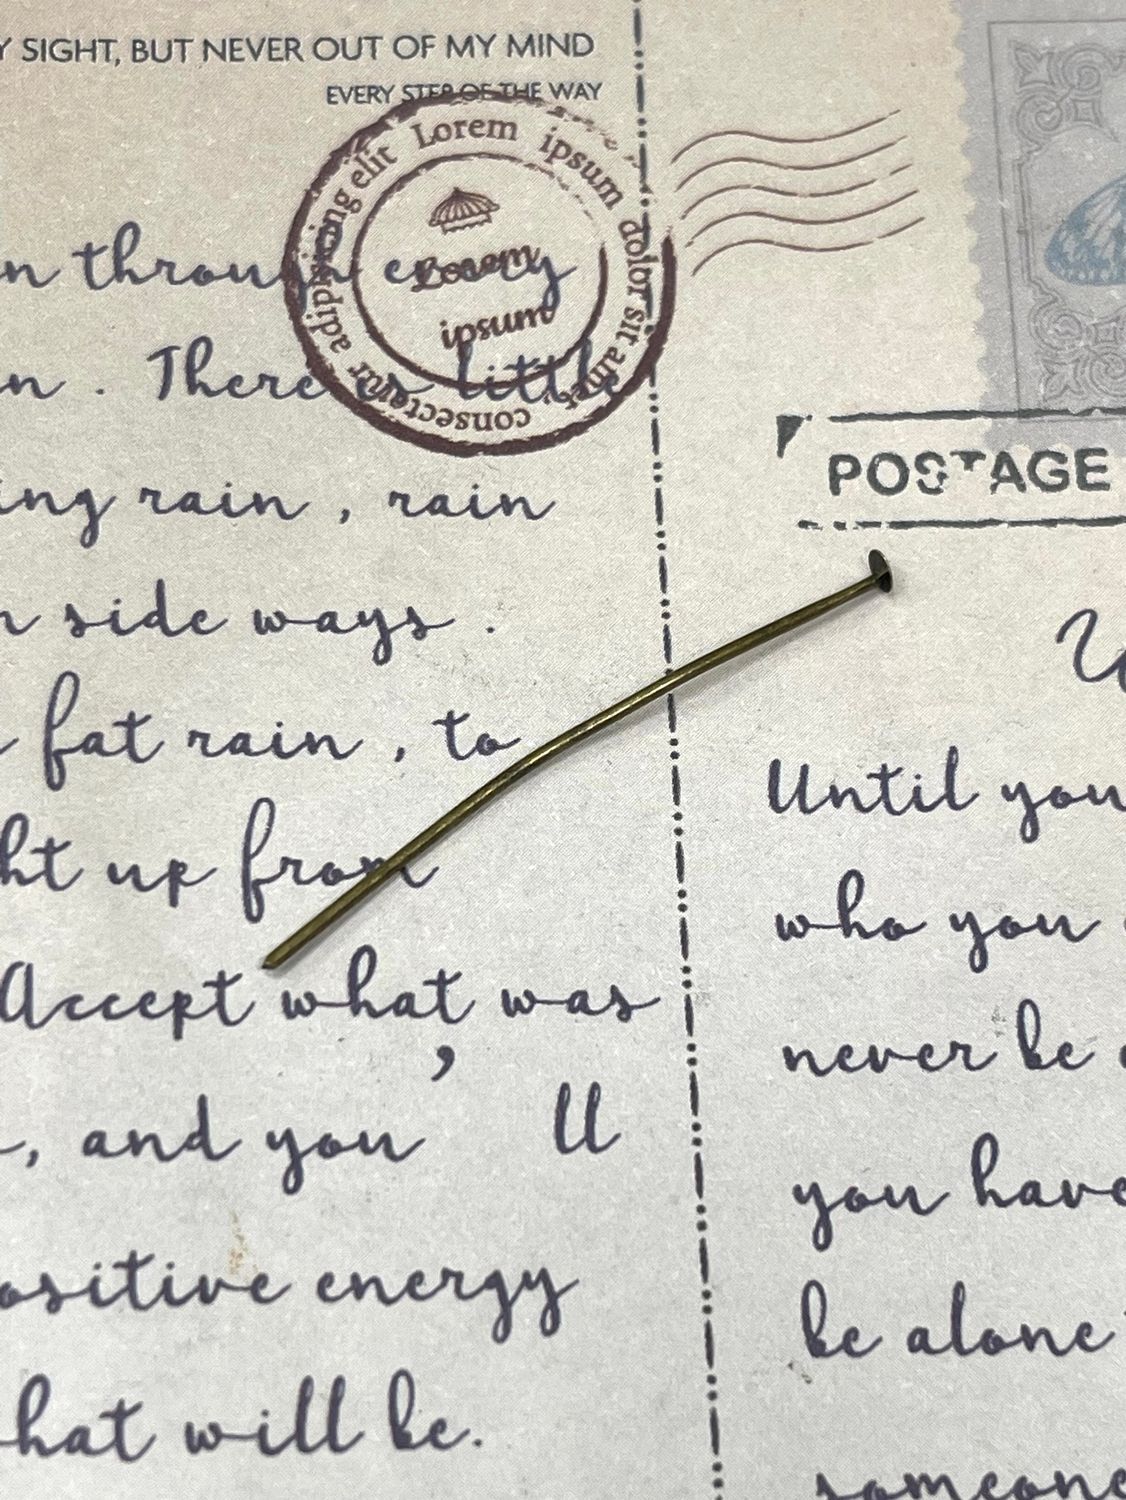 Y SIGHT, BUT NEVER OUT OF MY MIND
EVERY STEP OF THE WAY
Lorem ipsum dolor sit amet, consectetur adipisicing elit
Lorem
ipsum
n through every
n . There is little
ing rain , rain
n side ways .
fat rain , to
ht up from
Accept what was
, and you ' ll
ositive energy
hat will be.
POSTAGE
Until you
who you
never be
you have
be alone
someone